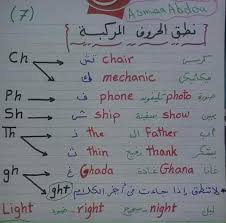 (7) Asmaa Abdou
نطق الحروف المركبة
Ch تش chair كرسي
ك mechanic ميكانيكي
Ph ف phone تليفون photo صورة
Sh ش ship سفينة show يبين
Th ذ the ال Father أب
ث thin رفيع thank يشكر
gh غ Ghada غادة Ghana غانا
ght لا تنطق إذا جاءت في آخر الكلام
Light ضوء - right صحيح - night ليل